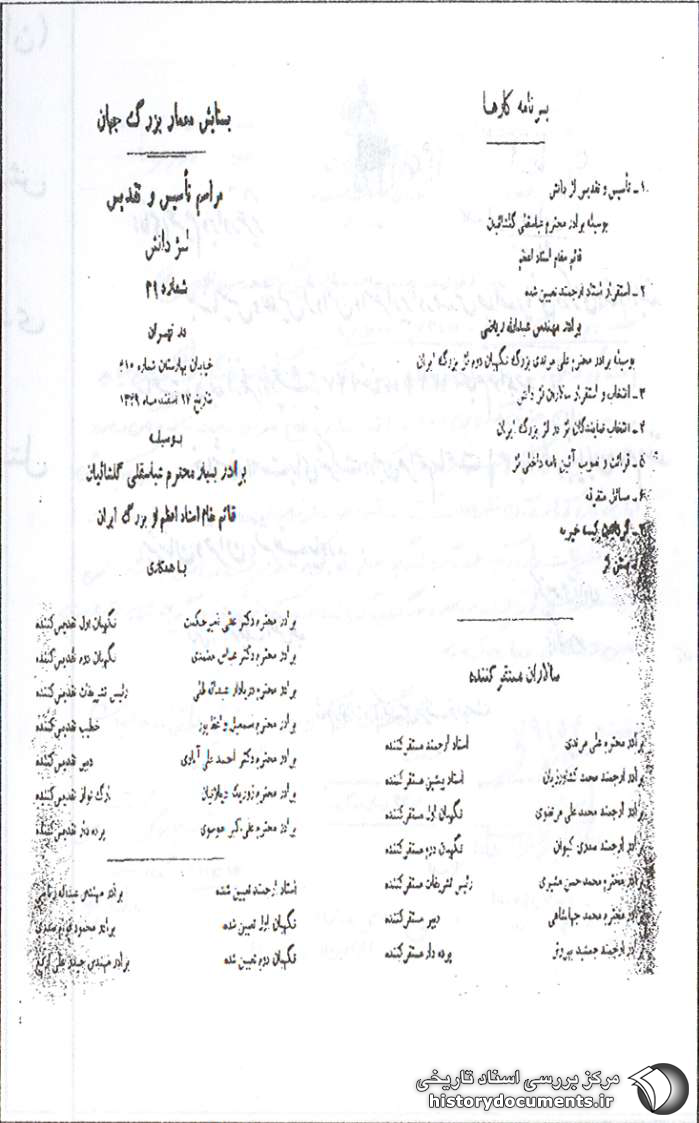 برنامه کارها
۱ـ تأسیس و تقدیس لژ دانش
بوسیله برادر محترم عباسقلی گلشائیان
قائم مقام استاد اعظم
۲ـ استقرار استاد ارجمند تعیین شده
برادر مهندس عبدالله ریاضی
بوسیله برادر محترم علی مرندی بزرگ نگهبان دوم لژ بزرگ ایران
۳ـ انتخاب و استقرار سالاران لژ دانش
۴ـ انتخاب نمایندگان لژ در لژ بزرگ ایران
۵ـ قرائت و تصویب آئین نامه داخلی لژ
۶ـ مسائل متفرقه
کیسه خیریه
بستن لژ
سالاران مستقر کننده
برادر محترم علی مرندی استاد ارجمند مستقر کننده
برادر ارجمند محمد کشاورزیان استاد پیشین مستقر کننده
برادر ارجمند محمد علی مرتضوی نگهبان اول مستقر کننده
برادر ارجمند سعدی کیوان نگهبان دوم مستقر کننده
برادر محترم محمد حسن مشیری رئیس تشریفات مستقر کننده
برادر محترم محمد جهانشاهی دبیر مستقر کننده
برادر ارجمند جمشید پیروز پرده دار مستقر کننده
بستایش معمار بزرگ جهان
مراسم تأسیس و تقدیس
لژ دانش
شماره ۴۹
در تهران
خیابان بهارستان شماره ۴۱۰
تاریخ ۱۷ اسفند ماه ۱۳۴۹
بوسیله
برادر بسیار محترم عباسقلی گلشائیان
قائم مقام استاد اعظم لژ بزرگ ایران
با همکاری
برادر محترم دکتر علی نصیر حکمت نگهبان اول تقدیس کننده
برادر محترم دکتر عباس معتمدی نگهبان دوم تقدیس کننده
برادر محترم دریادار عبدالله ظلی رئیس تشریفات تقدیس کننده
برادر محترم اسمعیل واعظ پور خطیب تقدیس کننده
برادر محترم دکتر احمد علی آبادی دبیر تقدیس کننده
برادر محترم ارگ نواز تقدیس کننده
برادر محترم علی اکبر موسوی پرده دار تقدیس کننده
استاد ارجمند تعیین شده برادر مهندس عبدالله ریاضی
نگهبان اول تعیین شده برادر محمود
نگهبان دوم تعیین شده برادر مهندس
مرکز بررسی اسناد تاریخی
historydocuments.ir